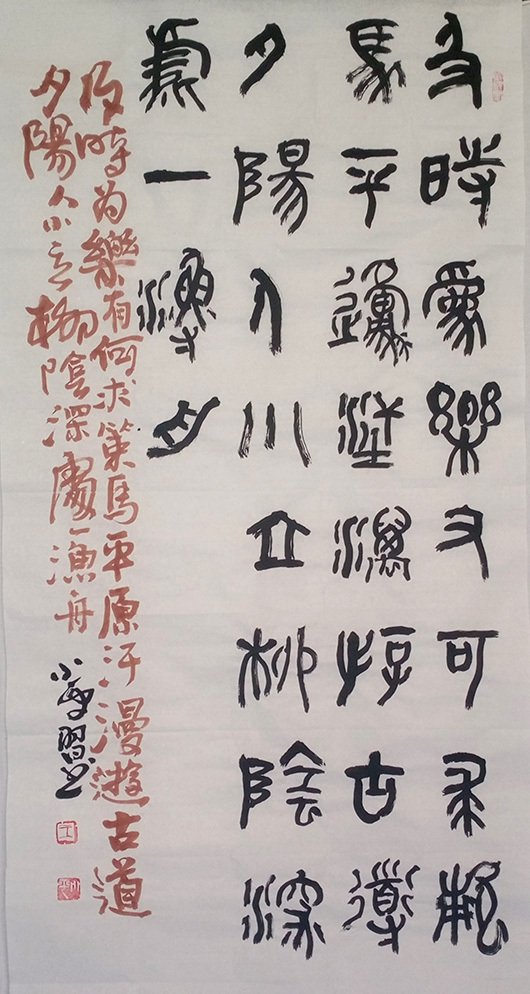 及時爲樂又可求策
馬平邍汗漫斿古道
夕陽人小立柳陰深
處一漁舟
及時为樂有何求策馬平原汗漫遊古道
夕陽人小立柳陰深處一漁舟